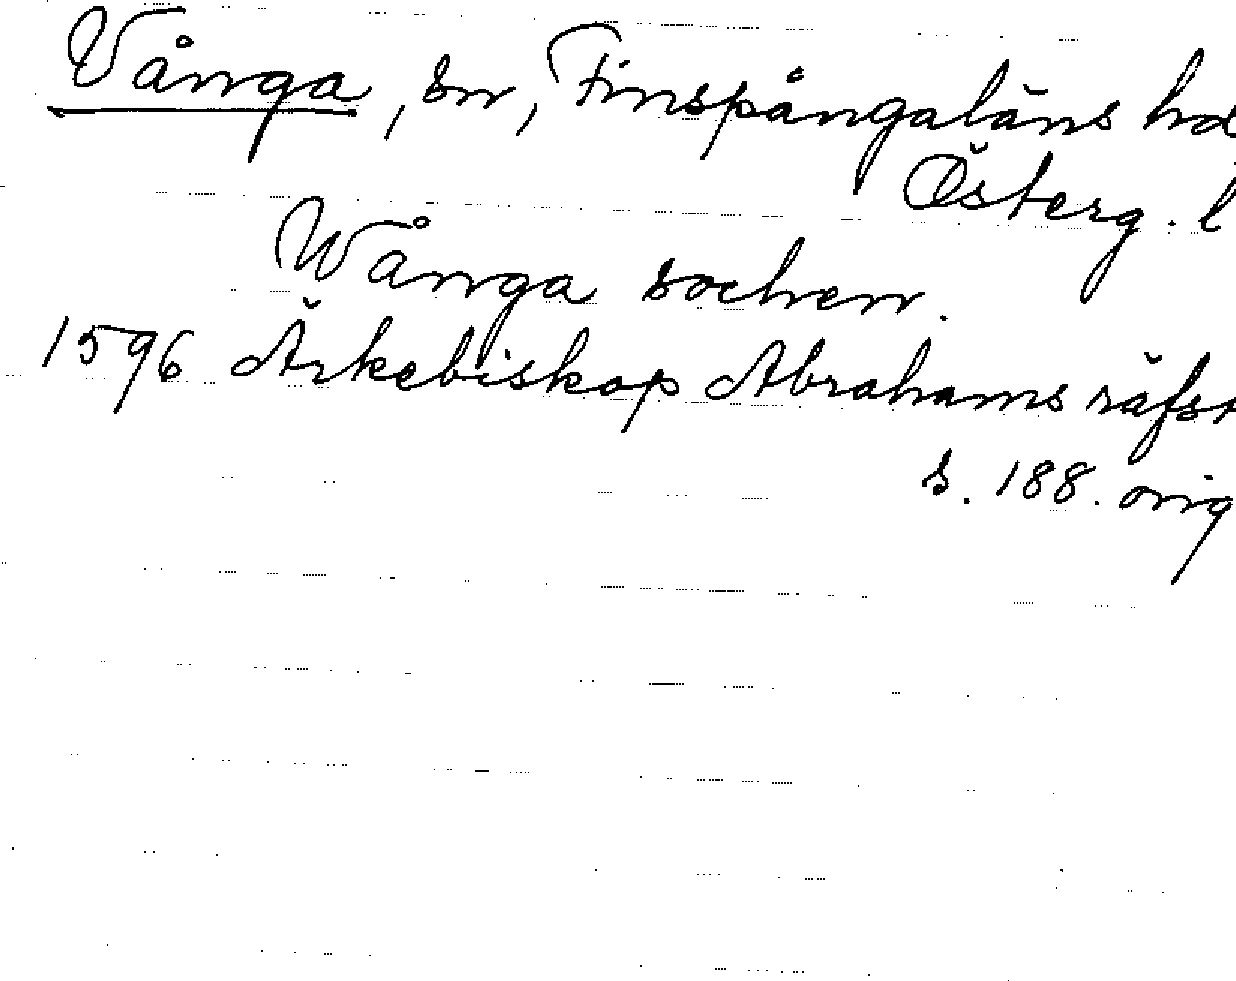 Vånga, sn, Finspångaläns hd
Österg. l
Wånga sochenn.
1596 Ärkebiskop Abrahams räfst
s. 188. orig